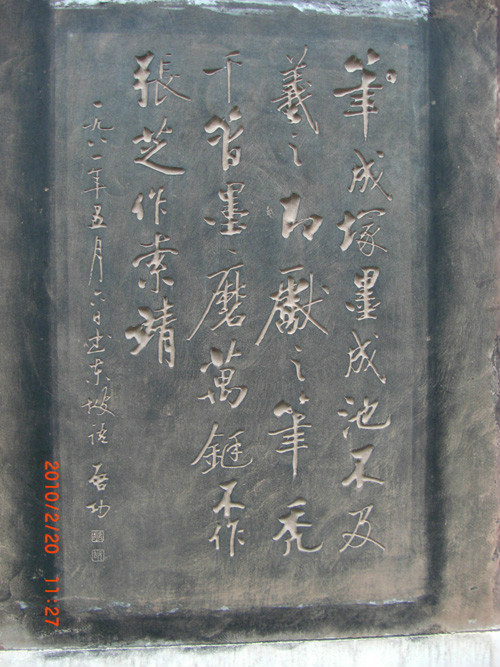 筆成塚墨成池不及
羲之即獻之筆禿
千管墨磨萬鋌不作
張芝作索靖
一九八一年五月六日书東坡語 启功
2010/2/20 11:27